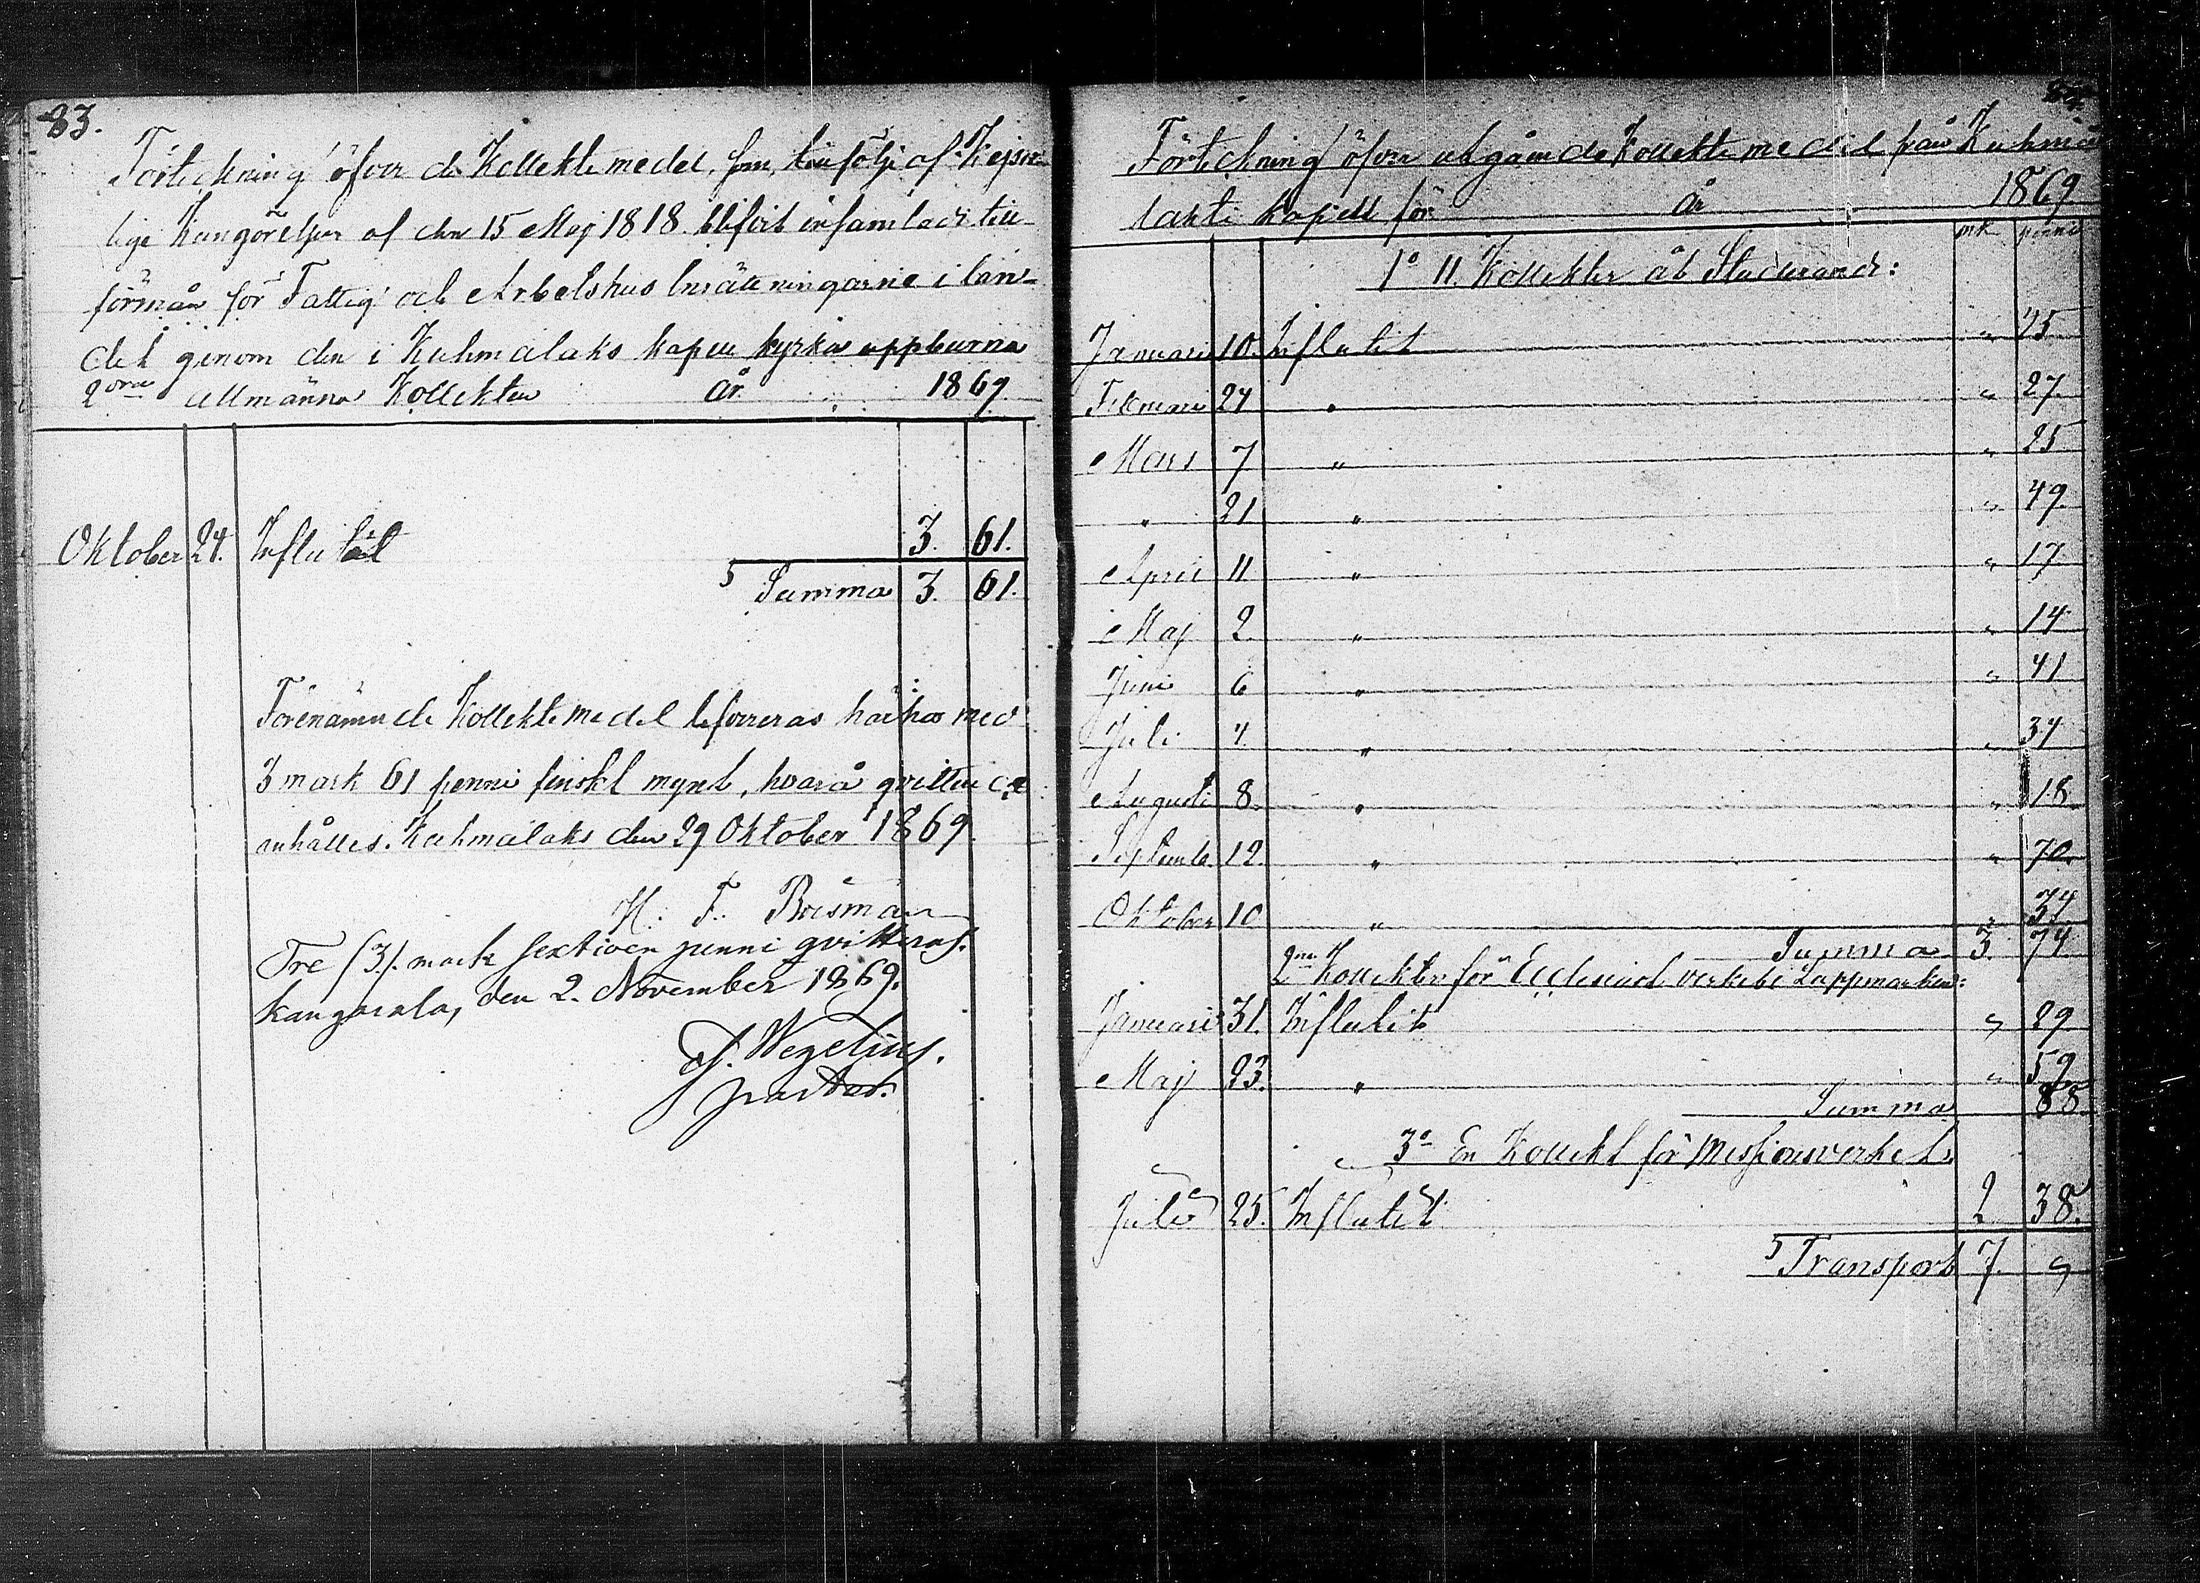 83.
Förteckning öfver de Kollektemedel, som, till följe af Kejser-
lige Kungörelsen af den 15 Maj 1818 blifvit insamlade till
förmån för Fattig och Arbetshus Inrättningarne i lan-
det genom den i Kuhmalaks kapell kyrka uppburna
2dra allmänna Kollekten år 1869
Oktober 24. Influtit 3. 61.
Summa 3. 61.
Förenämnde Kollektemedel lefvereras härhos med
3 mark 61 penni finskt mynt, hvarå qvittence
anhålles. Kuhmalaks den 29 Oktober 1869.
H. F. Boisman
Tre (3). mark sextioen penni qvitteras.
Kangasala, den 2. November 1869.
Wegelius.
pastor.
84.
Förteckning öfver utgående Kollektemedel från Kuhma-
lahti kapell för år 1869
mk penni
1o 11 Kollekter åt Studerande:
Januari 10. Influtit " 25
Februari 24 " " 27.
Mars 7 " " 25
" 21 " " 49.
April 11 " " 17.
Maj 2 " " 14
Juni 6 " " 41
Juli 4 " " 34
Augusti 8. " " 18.
Septemb. 12. " " 70.
Oktober 10 " " 54
Summa 3. 74.
2ne Kollekter för Ecclesiastverket i Lappmarken:
Januari 31. Influtit " 29
Maj 23. " " 59
Summa 88.
3o En Kollekt för Missionsverket.
Juli 25. Influtit 2 38.
Transport 7. "